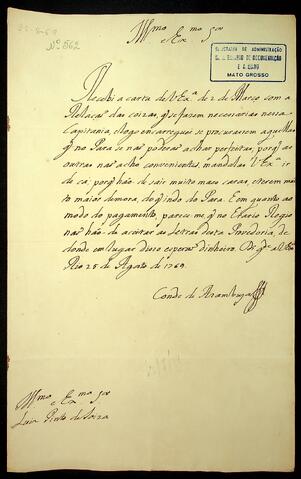 Nº 562
Illmo e Exmo Snr
SECRETARIA DE ADMINISTRAÇÃO
DOCUMENTAÇÃO
E ARQUIVO
MATO GROSSO
Recebi a carta de V Exª de 2 de Março com a
Relação das coizas, q se fazem necessarias nessa
Capitania, e logo encarreguei se procurassem aquellas
q no Pará se não podessem achar perfeitas, porq as
outras não acho conveniente, mandalas V Exª ir
de cá, porq hão de sair muito mais caras, e terem mui
to maior demora, do q indo do Pará. Em quanto ao
modo do pagamento, pareceme, q no Erario Regio
não hão de aceitar as letras dessa Provedoria, de
donde em lugar disso esperão dinheiro. Ds gde a V Exª
25 de Agosto de 1769.
Conde de Azambuja
Illmo e Exmo Snr
Luiz Pinto de Souza